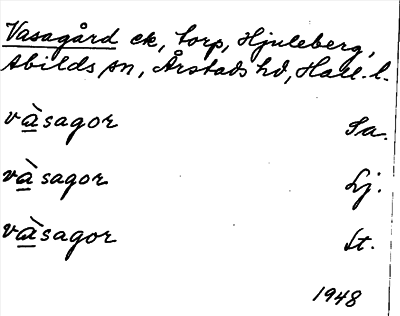 Vasagård ck, torp, Hjuleberg,
Abilds sn, Årstads hd, Hall. l.
và̲sagor Sa.
và̲sagor Lj.
và̲sagor St.
1948